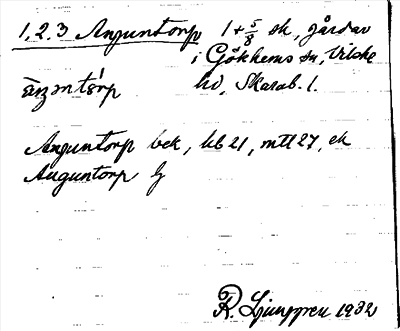 1, 2, 3 Anguntorp 1 + 5/8 sk, gårdar
i Gökhems sn, Vilske
hd, Skarab. l.
Anguntorp bek, hb 21, mtl 27, ek
Auguntorp lj
R. Ljunggren 1932